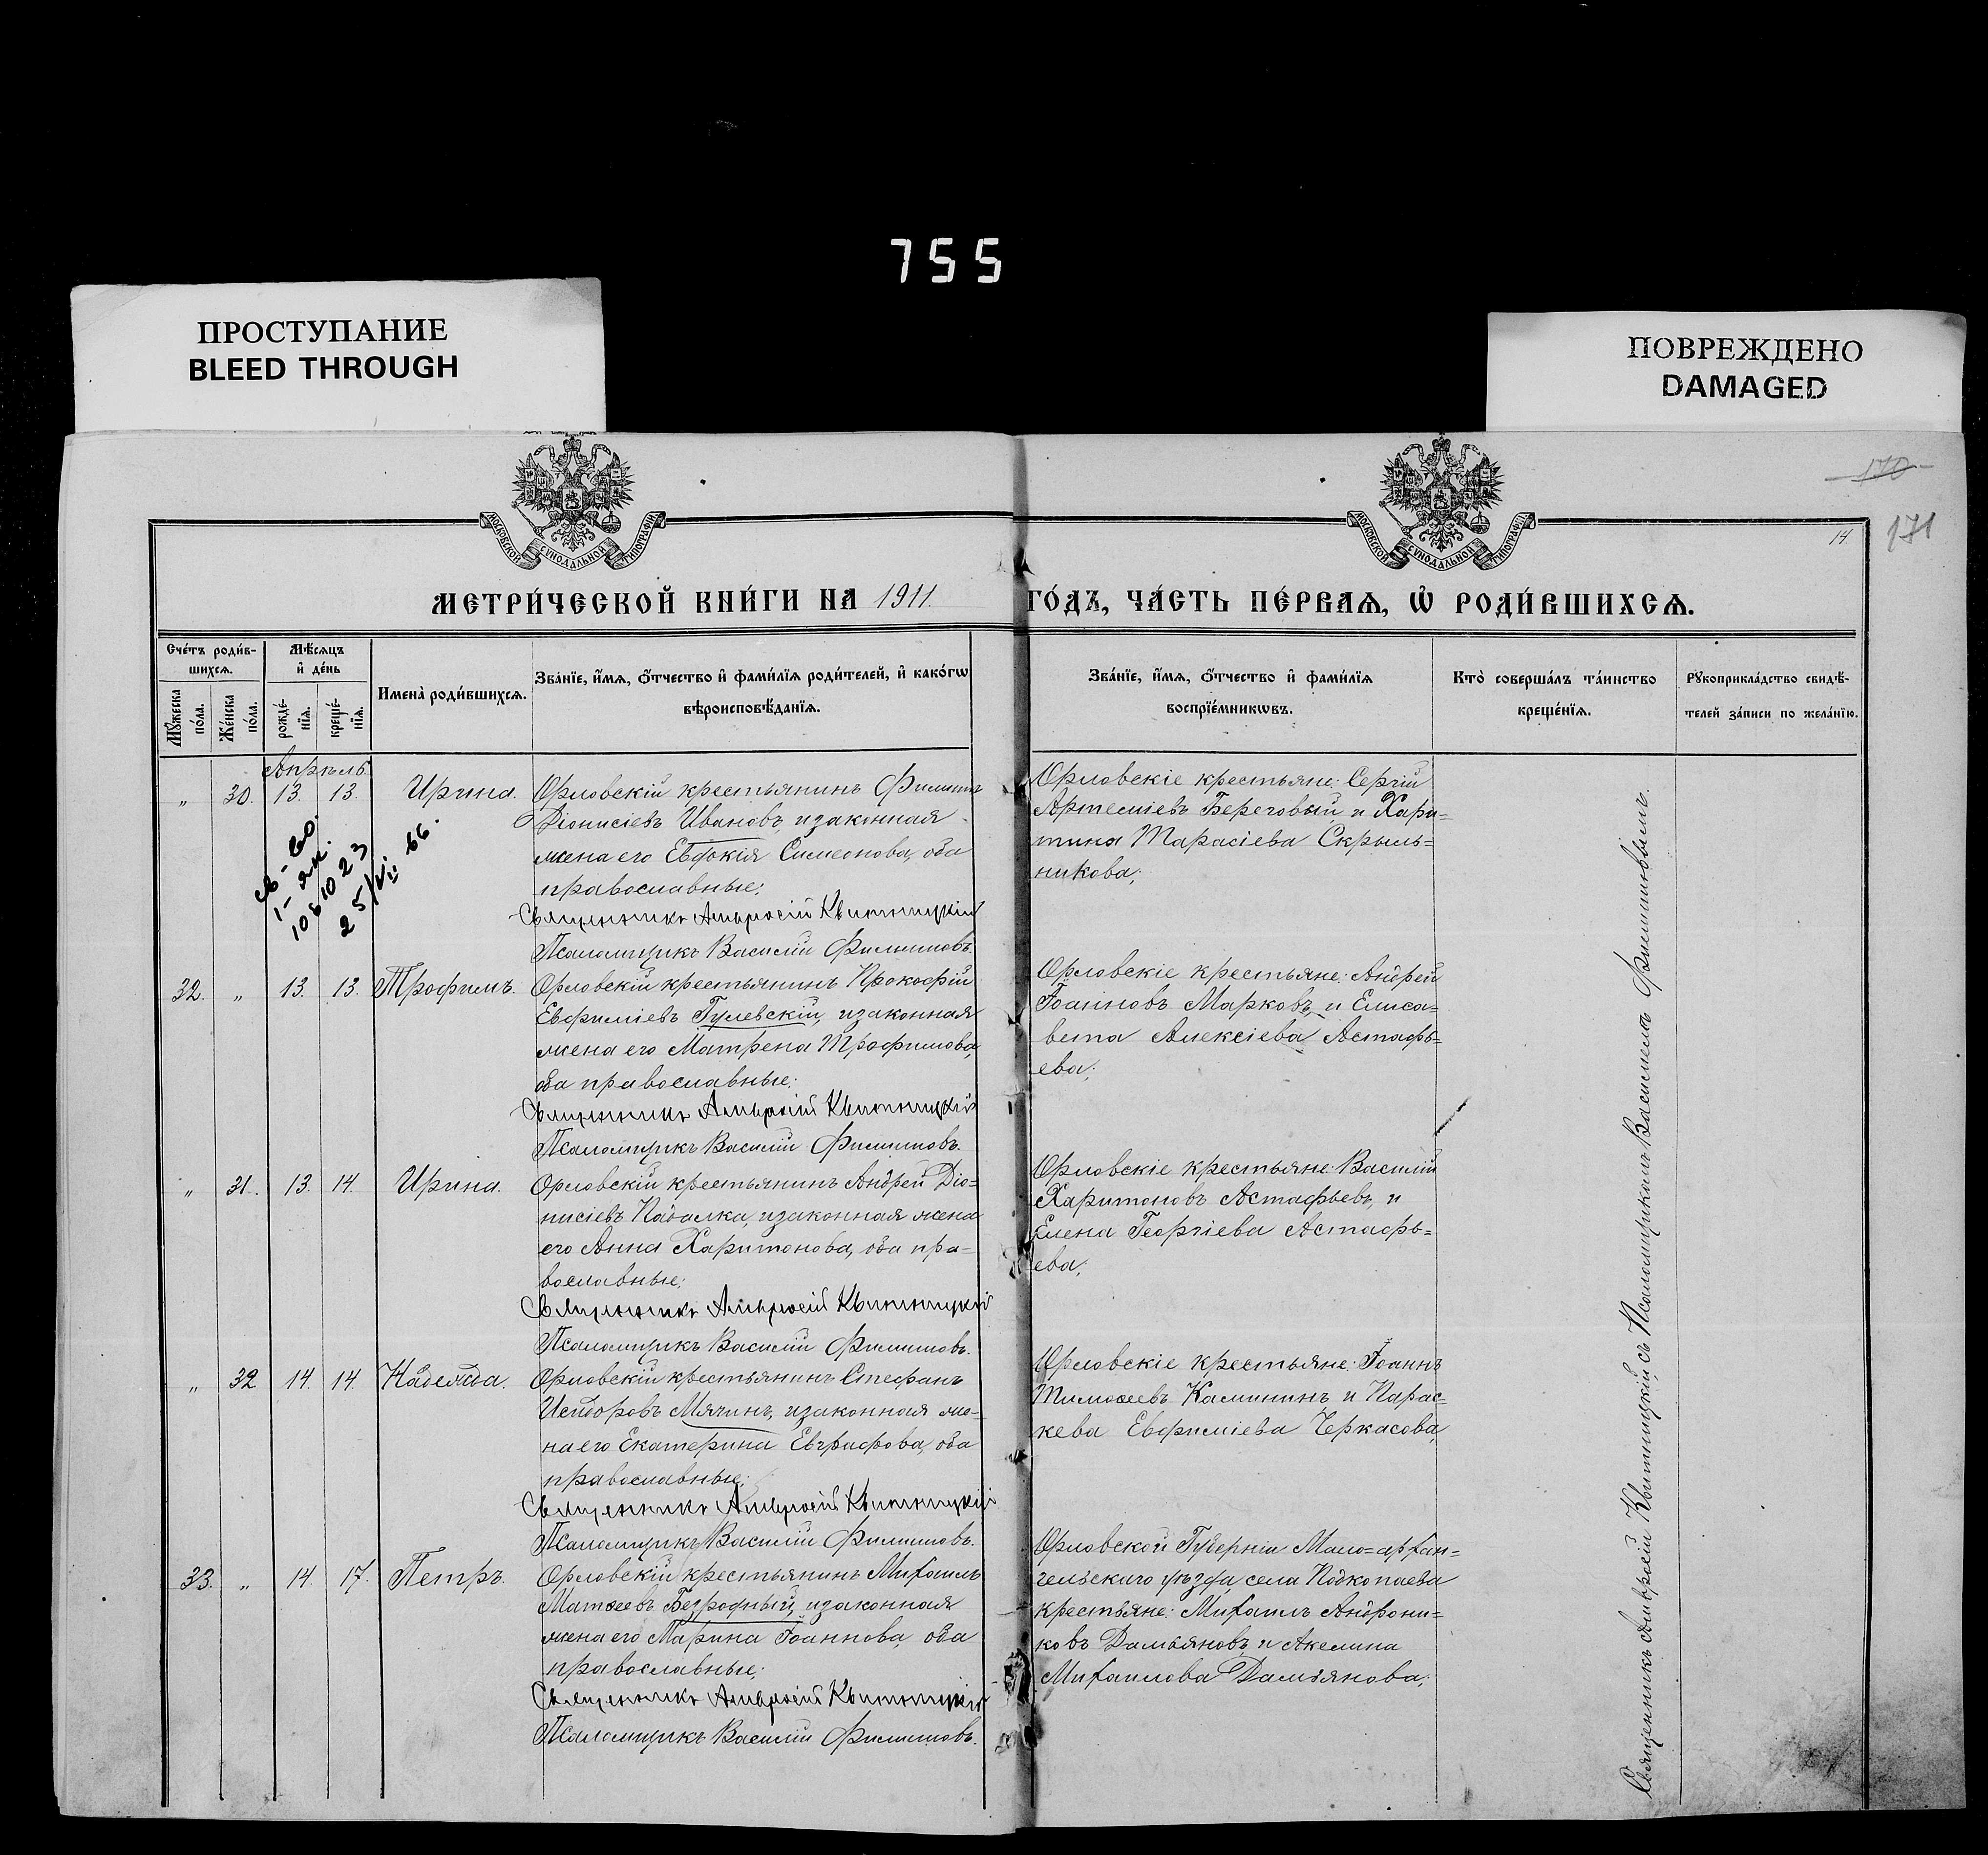 755
ПРОСТУПАНИЕ
BLEED THROUGH
ПОВРЕЖДЕНО
DAMAGED
170
171
14.
МОСКОВСКОЙ СѴНОДАЛЬНОЙ ТИПОГРАФІИ
МОСКОВСКОЙ СѴНОДАЛЬНОЙ ТИПОГРАФІИ
МЕТРИ́ЧЕСКОЙ КНИ́ГИ НА 1911. ГО́ДЪ, ЧА́СТЬ ПЕ́РВАѦ, Ѡ҆ РОДИ́ВШИХСѦ.
Сче́тъ роди́в-
шихсѧ.
Мꙋ́жеска
по́ла.
Же́нска
по́ла.
Мѣ́сѧцъ
и҆ де́нь
рожде́-
нїѧ.
креще́-
нїѧ.
Имена̀ роди́вшихсѧ.
Зва́нїе, и҆́мѧ, ѻ҆́тчество и҆ фами́лїѧ роди́телей, и҆ како́гѡ
вѣроисповѣ́данїѧ.
Зва́нїе, и҆́мѧ, ѻ҆́тчество и҆ фами́лїѧ
воспрїе́мникѡвъ.
Кто̀ соверша́лъ та́инство
креще́нїѧ.
Рꙋкоприкла́дство свидѣ́-
телей за́писи по жела́нїю.
Апрѣль.
„ 30. 13. 13. Ирина.
Орловскій крестьянинъ Филиппъ
Діонисіевъ Ивановъ, и законная
жена его Евдокія Симеонова, оба
православные;
Священникъ Амвросій Квитницкій
Псаломщикъ Василій Филипповъ.
Орловскіе крестьяне: Сергій
Артеміевъ Береговый, и Хари=
тина Тарасіева Скрыль=
никова;
св-во
1-як.
106 10 23
25/VII 66.
32. „ 13. 13. Трофимъ.
Орловскій крестьянинъ Прокофій
Евфиміевъ Гулевскій, и законная
жена его Матрена Трофимова,
оба православные;
Священникъ Амвросій Квитницкій
Псаломщикъ Василій Филипповъ.
Орловскіе крестьяне: Андрей
Іоанновъ Марковъ, и Елиса=
вета Алексіева Астафь=
ева;
„ 31. 13. 14. Ирина.
Орловскій крестьянинъ Андрей Діо=
нисіевъ Падалка, и законная жена
его Анна Харитонова, оба пра=
вославные;
Священникъ Амвросій Квитницкій
Псаломщикъ Василій Филипповъ.
Орловскіе крестьяне: Василій
Харитоновъ Астафьевъ, и
Елена Георгіева Астафь=
ева;
„ 32 14. 14. Надежда.
Орловскій крестьянинъ Стефанъ
Исидоровъ Мячинъ, и законная же=
на его Екатерина Евграфова, оба
православные;
Священникъ Амвросій Квитницкій
Псаломщикъ Василій Филипповъ.
Орловскіе крестьяне: Іоаннъ
Тимоѳеевъ Калининъ, и Парас=
кева Евфиміева Черкасова;
33. „ 14. 17. Петръ.
Орловскій крестьянинъ Михаилъ
Матѳеевъ Безродный, и законная
жена его Марина Іоаннова, оба
православные;
Священникъ Амвросій Квитницкій
Псаломщикъ Василій Филипповъ.
Орловской Губерніи Мало=архан=
гельскаго уѣзда, села Подкопаева
крестьяне: Михаилъ Андрони=
ковъ Дамьяновъ, и Акелина
Михаилова Дамьянова;
Священникъ Амвросій Квитницкій, съ Псаломщикомъ Василіемъ Филипповымъ.